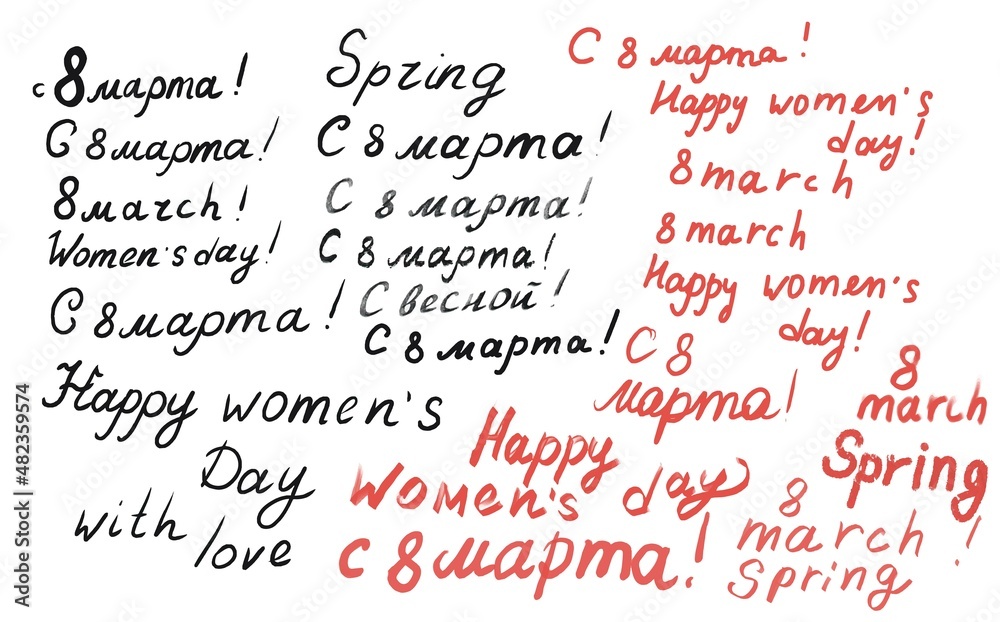 с 8 марта!
С 8 марта!
8 march!
Women's day!
С 8 марта!
Happy women's
Day
with love
Spring
С 8 марта!
С 8 марта!
С 8 марта!
С весной!
С 8 марта!
С 8 марта!
Happy women's
day!
8 march
8 march
Happy women's
day!
С 8
марта!
8
march
Spring
Happy
Women's day
с 8 марта!
8
march!
Spring
Adobe Stock | #482359574